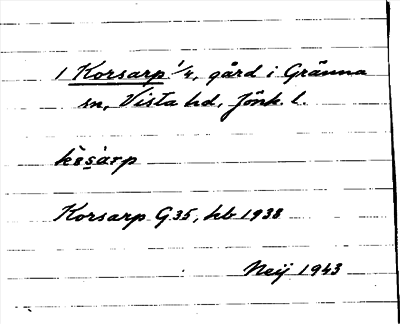 1 Korsarp 1/4, gård i Gränna
sn, Vista hd, Jönk. l.
Korsarp G35, hb 1938
Neij 1943